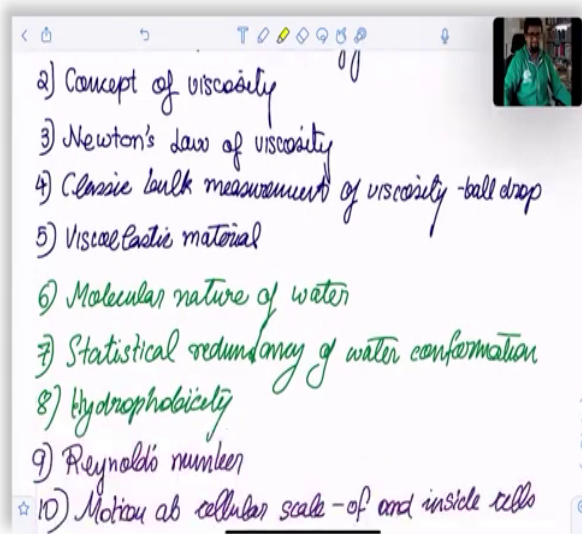 2) Concept of viscosity
3) Newton's Law of viscosity
4) Classic bulk measurement of viscosity - ball drop
5) Viscoelastic material
6) Molecular nature of water
7) Statistical redundancy of water conformation
8) Hydrophobicity
9) Reynolds number
10) Motion at cellular scale - of and inside cells